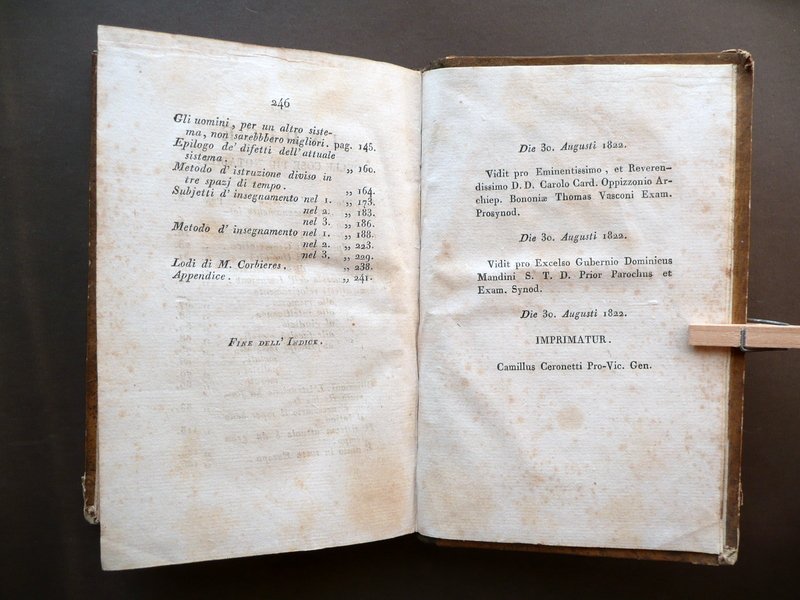 246
Gli uomini, per un altro siste-
ma, non sarebbbero migliori. pag. 145.
Epilogo de' difetti dell'attuale
sistema. „ 160.
Metodo d'istruzione diviso in
tre spazj di tempo. „ 164.
Subjetti d'insegnamento nel 1. „ 173.
nel 2. „ 183.
nel 3. „ 186.
Metodo d'insegnamento nel 1. „ 188.
nel 2. „ 223.
nel 3. „ 229.
Lodi di M. Corbieres. „ 238.
Appendice. „ 241.
FINE DELL' INDICE.
Die 30. Augusti 1822.
Vidit pro Eminentissimo, et Reveren-
dissimo D. D. Carolo Card. Oppizzonio Ar-
chiep. Bononiæ Thomas Vasconi Exam.
Prosynod.
Die 30. Augusti 1822.
Vidit pro Excelso Gubernio Dominicus
Mandini S. T. D. Prior Parochus et
Exam. Synod.
Die 30. Augusti 1822.
IMPRIMATUR.
Camillus Ceronetti Pro-Vic. Gen.